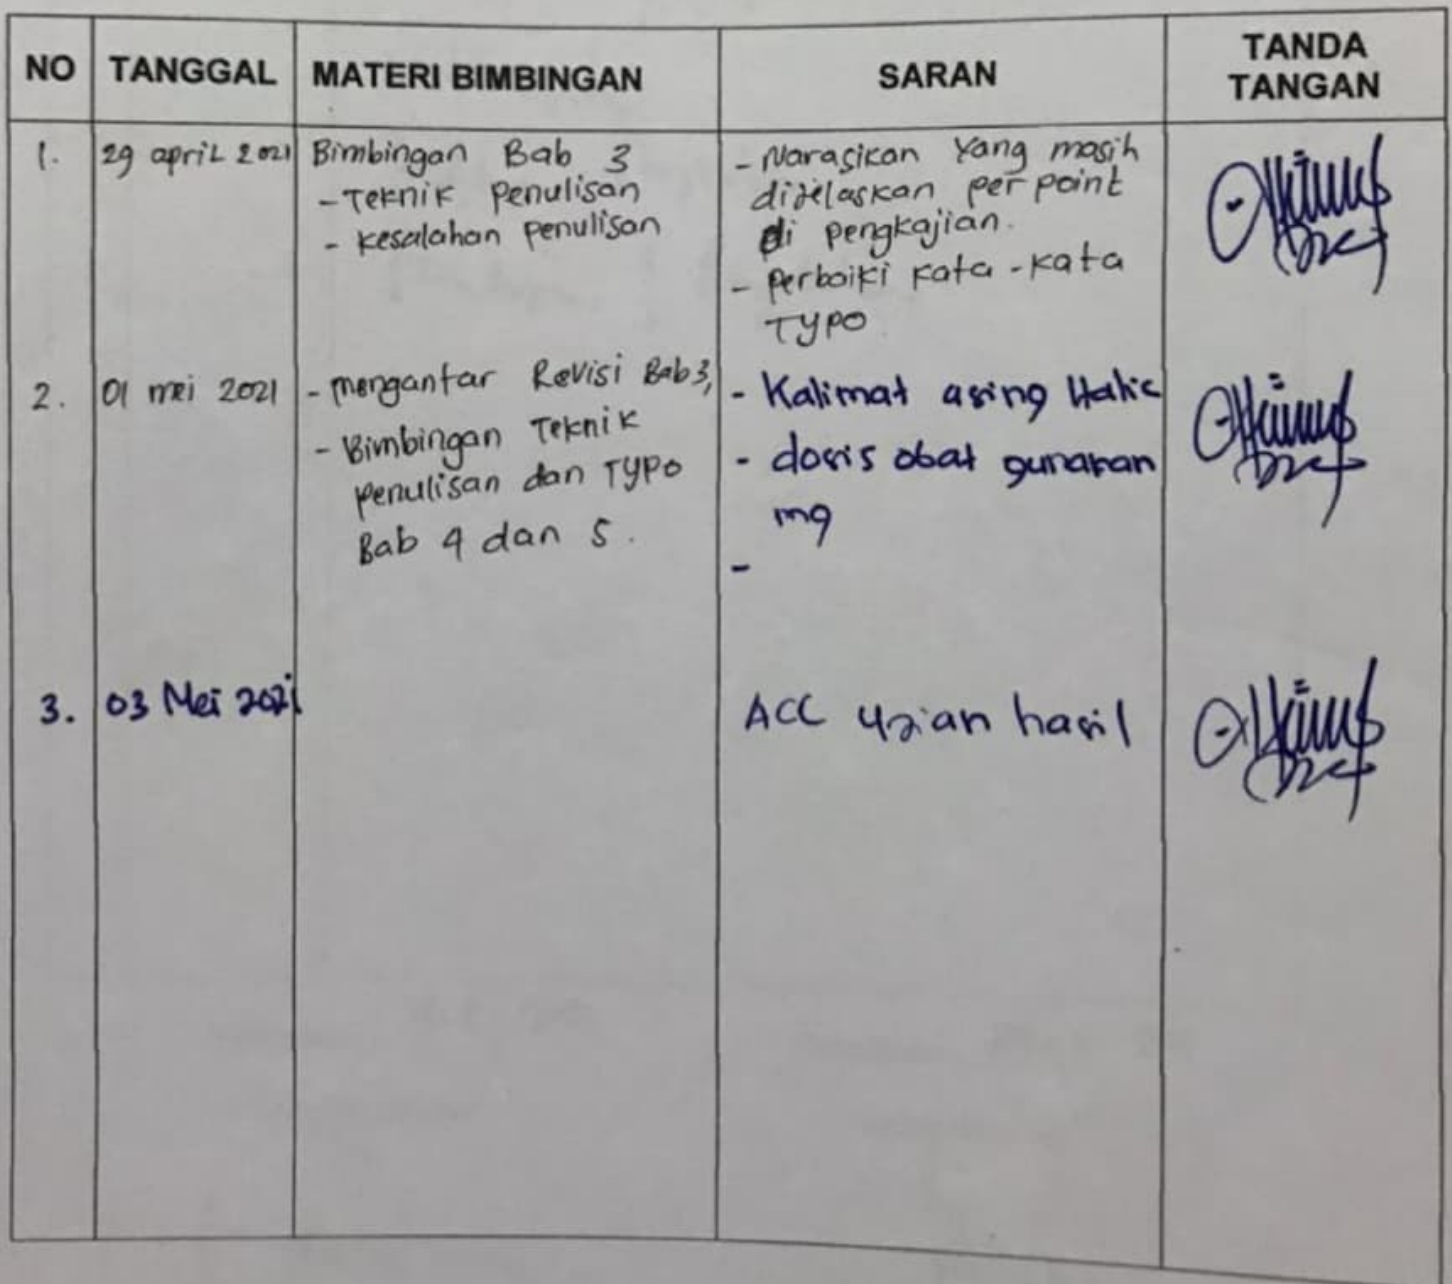 NO TANGGAL MATERI BIMBINGAN SARAN TANDA TANGAN
1. 29 april 2021
Bimbingan Bab 3
- Teknik Penulisan
- kesalahan penulisan
- Narasikan Yang masih
dijelaskan per point
di pengkajian.
- Perbaiki kata-kata
TYPO
2. 01 mei 2021
- mengantar Revisi Bab 3,
- Bimbingan Teknik
penulisan dan TYPO
Bab 4 dan 5.
- Kalimat asing Italic
- dosis obat gunakan
mg
-
3. 03 Mei 2021
ACC Ujian hasil